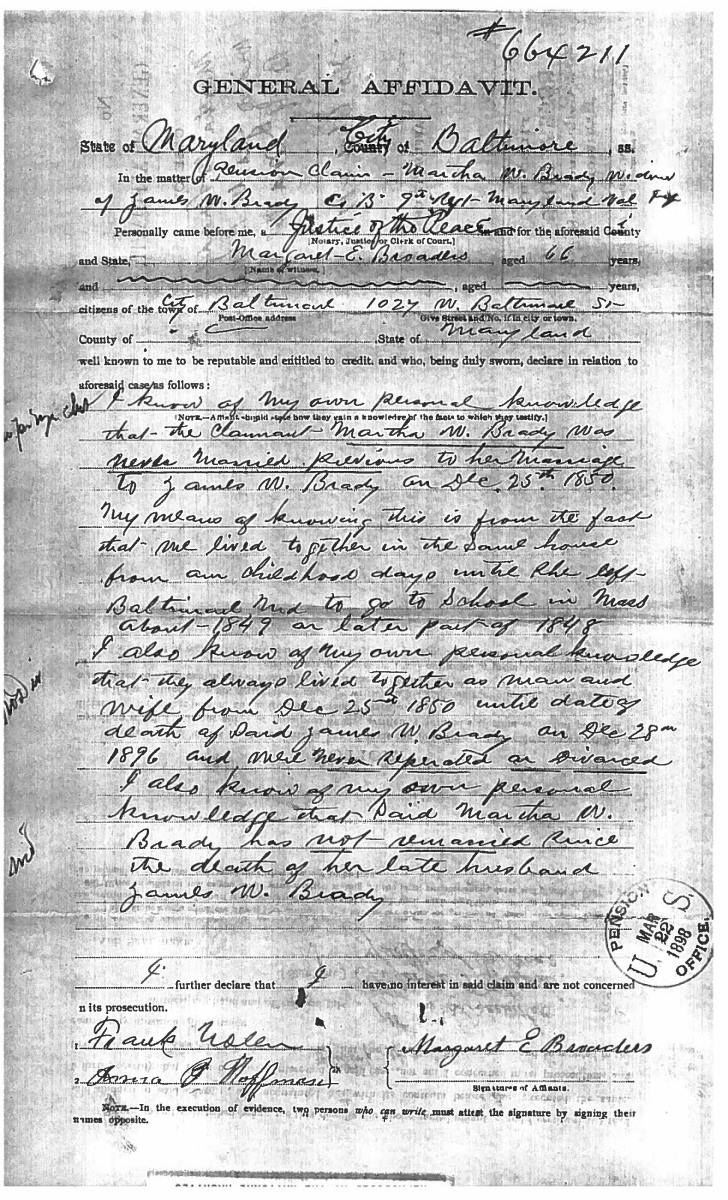 #664211
GENERAL AFFIDAVIT.
State of Maryland, City County of Baltimore, ss.
In the matter of Pension Claim - Martha W. Brady Widow
of James W. Brady Co B- 9th Regt- Maryland Vol
Personally came before me, a Justice of the Peace in and for the aforesaid County
[Notary, Justice or Clerk of Court.]
and State, Margaret E. Broaders aged 66 years,
[Name of witness.]
and , aged years,
citizens of the town City of Baltimore 1027 W. Baltimore St-
Post-Office address Give Street and No. if in city or town.
County of , State of Maryland
well known to me to be reputable and entitled to credit, and who, being duly sworn, declare in relation to
aforesaid case as follows:
I know of my own personal knowledge
[NOTE.—Affiant should state how they gain a knowledge of the facts to which they testify.]
that the Claimant Martha W. Brady was
never Married previous to her Marriage
to James W. Brady on Dec. 25th 1850.
My means of knowing this is from the fact
that we lived together in the Same house
from our childhood days until She left
Baltimore Md to go to School in Mass
about-1849 or later part of 1848
I also know of my own personal knowledge
that they always lived together as man and
wife from Dec 25th 1850 until date of
death of Said James W. Brady on Dec 28th
1896 and were never Seperated or Divorced
I also know of my own personal
knowledge that Said Martha W.
Brady has not remarried Since
the death of her late husband
James W. Brady
PENSION OFFICE.
U S
MAR
22
1898
I further declare that I have no interest in said claim and are not concerned
n its prosecution.
1 Frank Nolen Margaret E Broaders
2. Anna Hoffman
Signatures of Affiants.
NOTE.—In the execution of evidence, two persons who can write must attest the signature by signing their
names opposite.